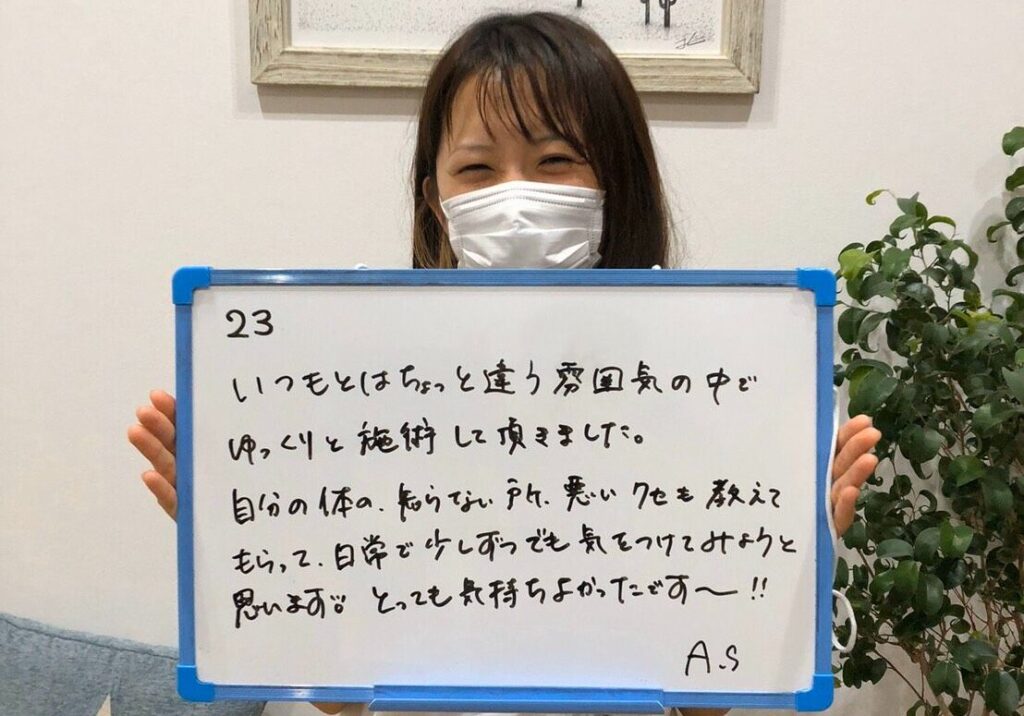 23
いつもとはちょっと違う雰囲気の中で
ゆっくりと施術して頂きました。
自分の体の、知らない所、悪いクセも教えて
もらって、日常で少しずつでも気をつけてみようと
思います。 とっても気持ちよかったです〜!!
A.S